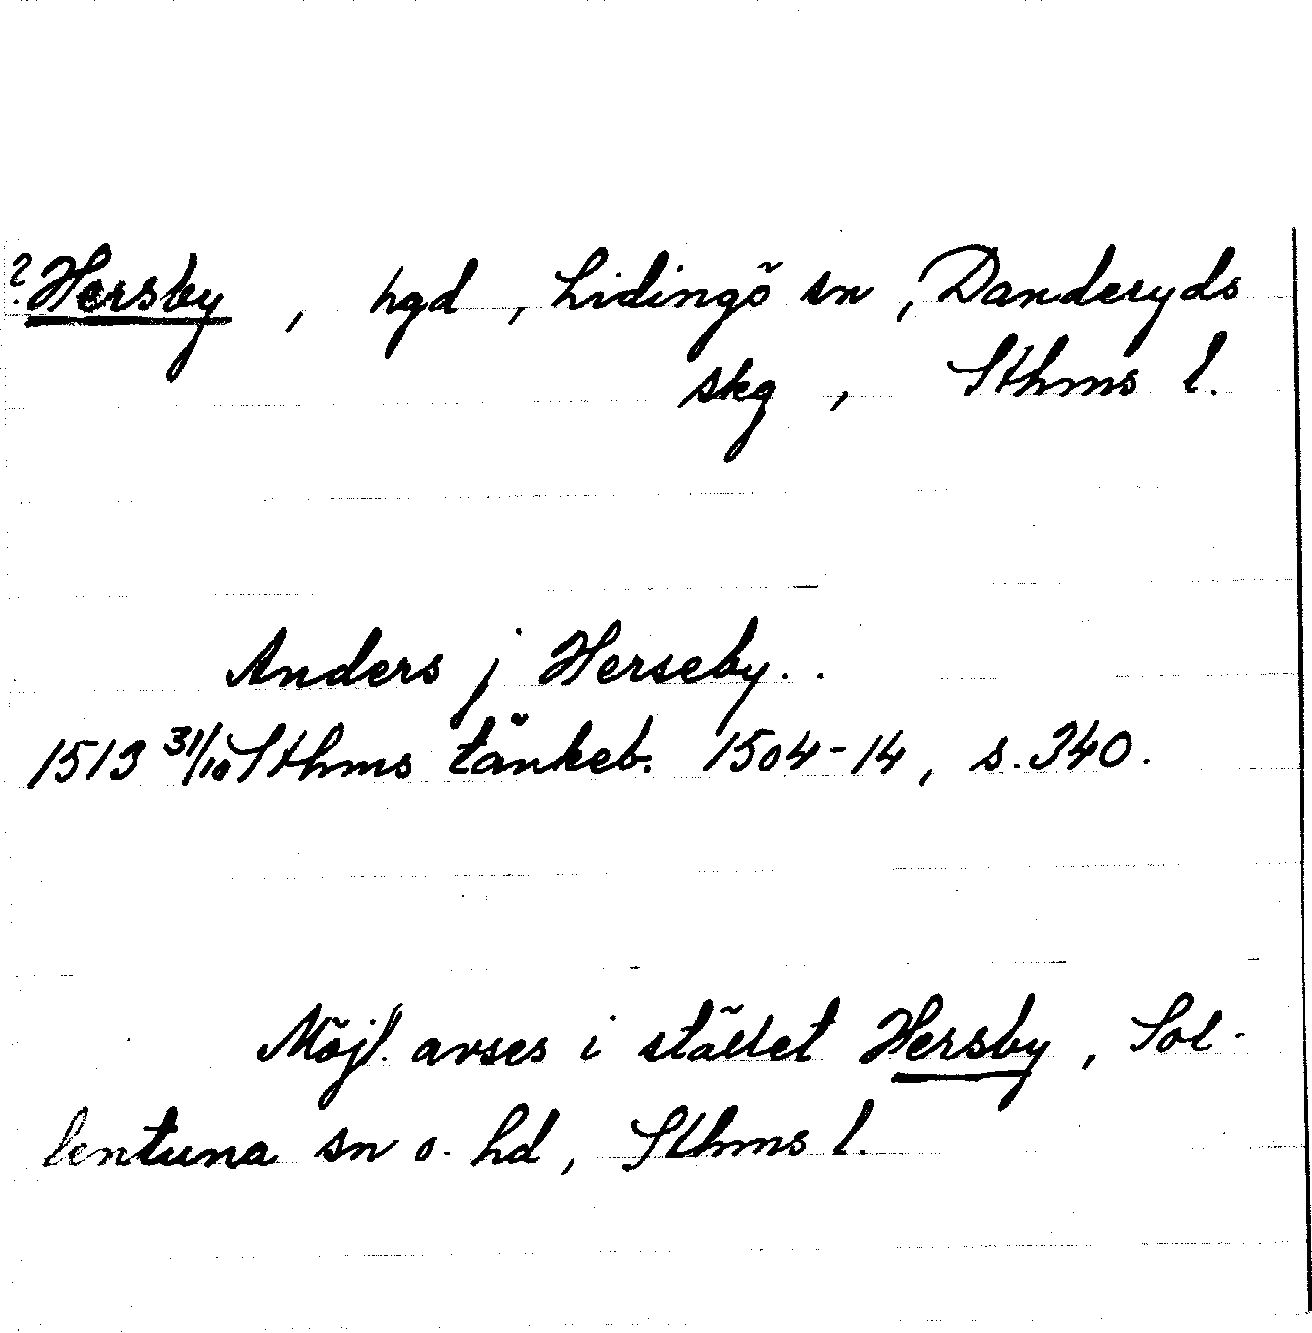 ? Hersby, hgd, Lidingö sn, Danderyds
skg, Sthms l.
Anders j Herseby..
1513 31/10 Sthms tänkeb. 1504-14, s. 340.
Möjl. avses i stället Hersby, Sol-
lentuna sn o. hd, Sthms l.